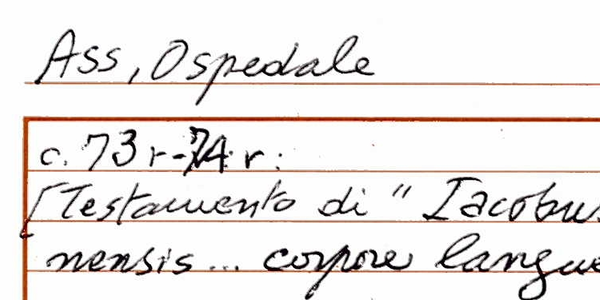 Ass, Ospedale
c. 73 r-74 r:
[Testamento di " Iacobus
nensis... corpore langue